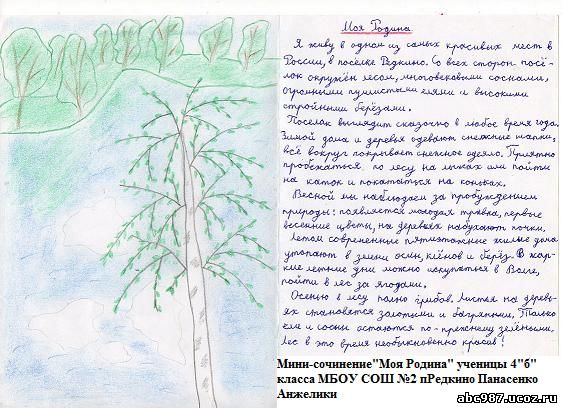 Моя Родина
Я живу в одном из самых красивых мест в
России, в посёлке Редкино. Со всех сторон посё-
лок окружён лесом, многовековыми соснами,
огромными пушистыми елями и высокими
стройными берёзами.
Поселок выглядит сказочно в любое время года.
Зимой дома и деревья одевают снежные шапки,
всё вокруг покрывает снежное одеяло. Приятно
пробежаться по лесу на лыжах или пойти
на каток и покататься на коньках.
Весной мы наблюдаем за пробуждением
природы: появляется молодая травка, первые
весенние цветы, на деревьях набухают почки.
Летом современные пятиэтажные жилые дома
утопают в зелени осин, клёнов и берёз. В жар-
кие летние дни можно искупаться в Волге,
пойти в лес за ягодами.
Осенью в лесу полно грибов. Листья на деревь-
ях становятся золотыми и багряными. Только
ели и сосны остаются по-прежнему зелёными.
Лес в это время необыкновенно красив!
Мини-сочинение"Моя Родина" ученицы 4"б"
класса МБОУ СОШ №2 пРедкино Панасенко
Анжелики
abc987.ucoz.ru